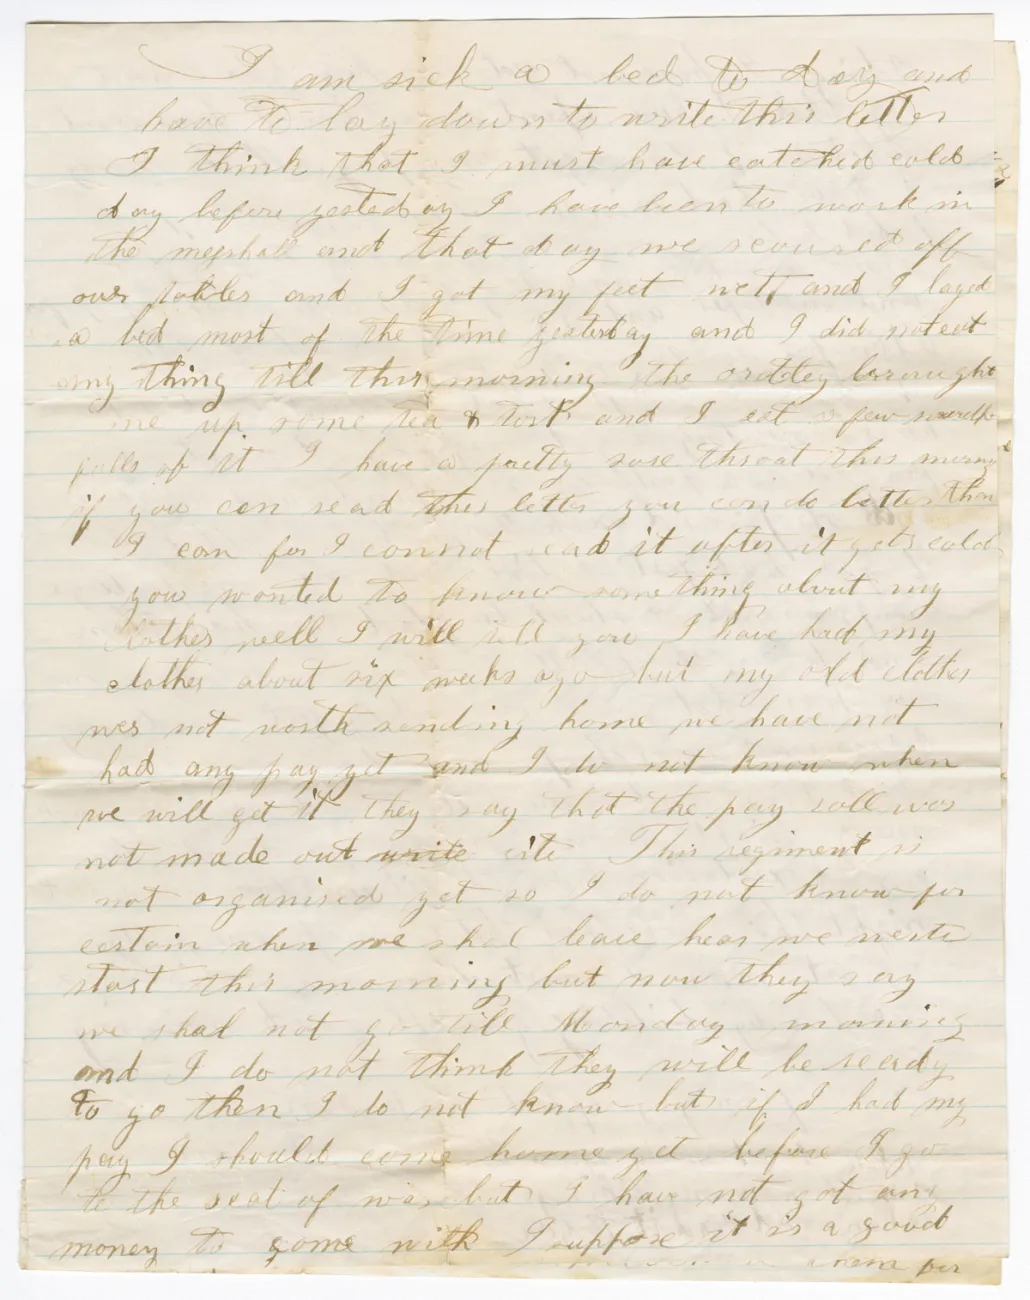 I am sick a bed to day and
have to lay down to write this letter
I think that I must have catched cold
day before yesteday I have been to work in
the messhall and that day we scoured off
our tables and I got my feet wett and I layed
a bed most of the time yesterday and I did not eat
any thing till this morning the ordley brought
me up some tea & tost and I eat a few
of it I have a pretty sore throat this
if you can read this letter you can do better than
I can for I connot read it after it gets cold
you wanted to know something about my
clothes well I will tell you I have had my
clothes about six weeks ago but my old clothes
was not worth sending home we have not
had any pay yet and I do not know when
we will get it they say that the pay roll was
not made out write This regiment is
not organised yet so I do not know for
certain when we shal leave hear we
start this morning but now they say
we shal not go till Monday morning
and I do not think they will be ready
to go then I do not know but if I had my
pay I should come home yet before I go
to the seat of war but I have not got any
money to come with I suppose it is a good
them for